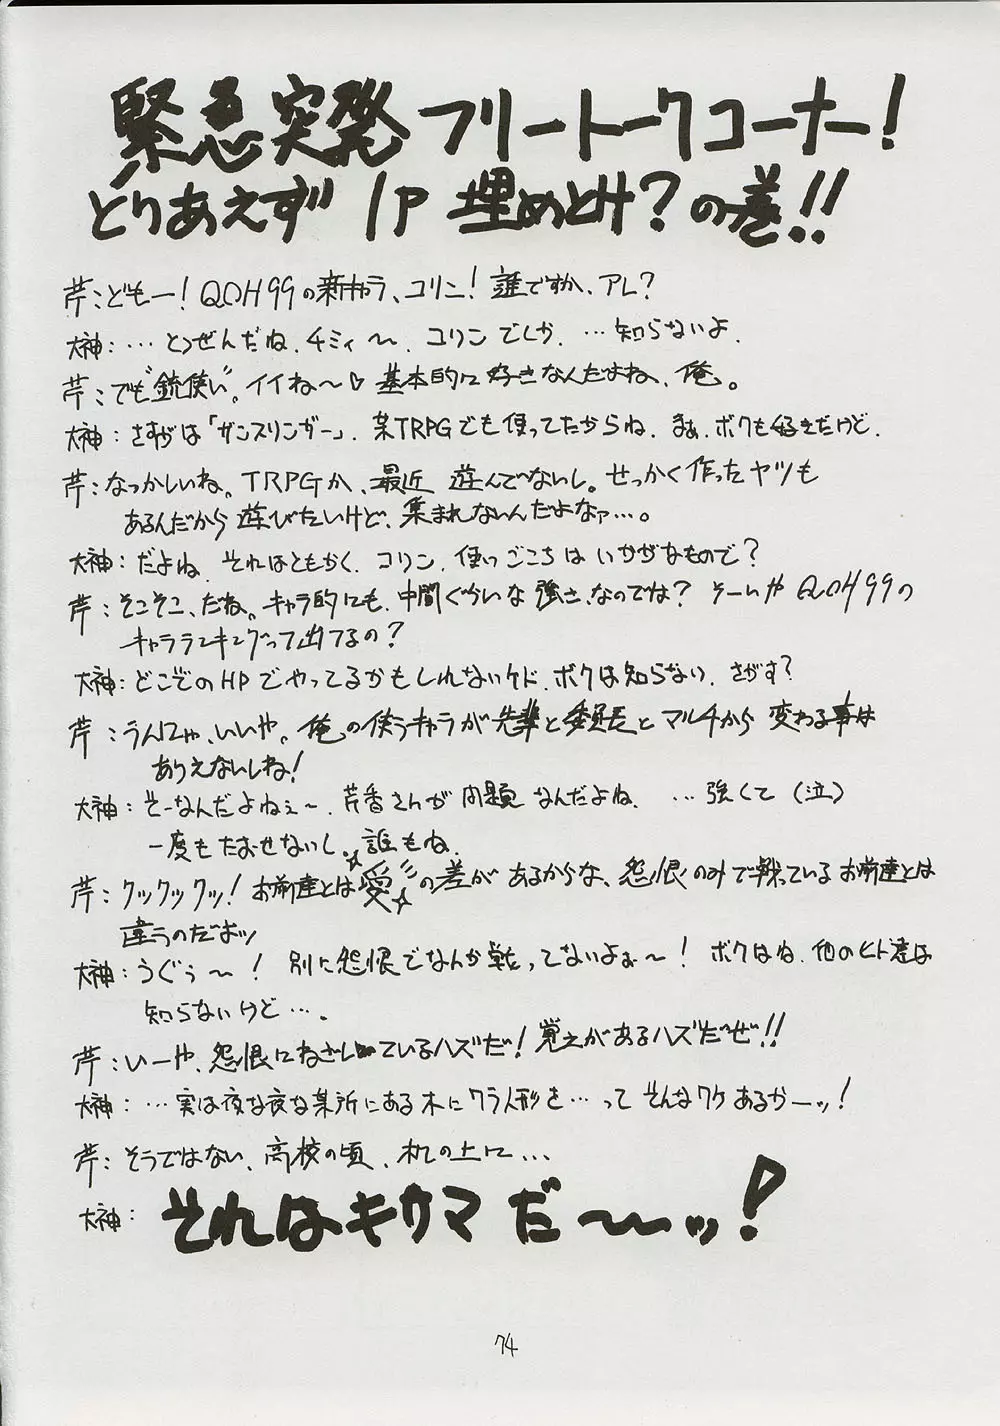 緊急突発 フリートークコーナー!
とりあえず 1P 埋めとけ?の巻!!
芹:どもー! QOH99の新キャラ、コリン! 誰ですか、アレ?
大神:…とつぜんだね、チミィ〜、コリンでしか、…知らないよ、
芹:でも"銃使い"。イイね〜♡ 基本的に好きなんだよね、俺。
大神:さすがは「ガンスリンガー」、某TRPGでも使ってたからね、まぁ、ボクも好きだけど、
芹:なつかしいね。TRPGか、最近 遊んでないし。せっかく作ったヤツも
あるんだから遊びたいけど、集まれないんだよなァ…。
大神:だよね、それはともかく、コリン、使いごこちはいかがなもので?
芹:そこそこ、だね。キャラ的にも、中間ぐらいな強さ、なのでは? そーいや QOH99の
キャラランキングって出てるの?
大神:どこぞのHPでやってるかもしれないケド、ボクは知らない、さがす?
芹:うんにゃ、いいや。俺の使うキャラが先輩と委員長とマルチから 変わる事は
ありえないしね!
大神:そーなんだよねぇ〜、芹香さんが 問題 なんだよね、…強くて(泣)
一度もたおせないし、誰もね、
芹:クックックッ! お前達とは☆愛☆の差が あるからな、怨恨のみで戦っているお前達とは
違うのだよッ
大神:うぐぅ〜! 別に怨恨でなんか戦ってないよぉ〜! ボクはね、他のヒト達は
知らないけど…。
芹:いーや、怨恨にねざしているハズだ! 覚えがあるハズだぜ!!
大神:…実は夜な夜な某所にある木にワラ人形を…って そんなワケあるかーッ!
芹:そうではない、高校の頃、机の上に…
大神:それはキサマだ〜〜ッ!
74